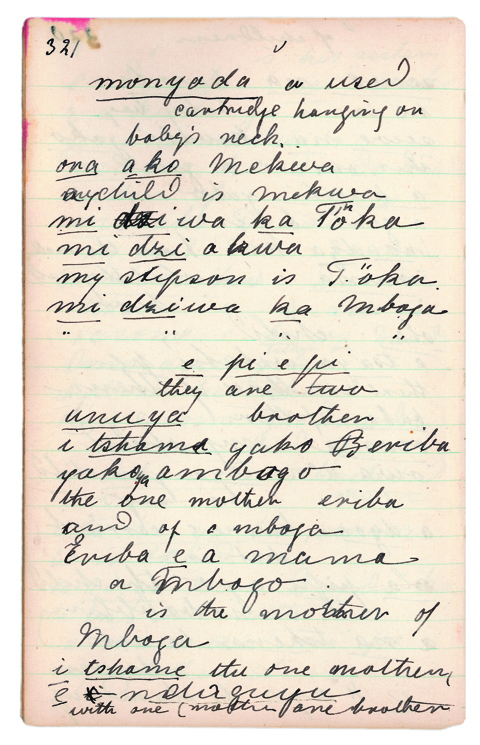 321
monyada a used
cartridge hanging on
baby's neck.
ona ako Mekwa
my child is mekwa
mi dziwa ka Töka
mi dzi akwa
my stepson is T. öka.
mi dziwa ka Mboga
" " " "
e pi e pi
they are two
unuya brother
i tshama yako Beriba
yako ya ambogo
the one mother eriba
and of a mboga
Eriba e a mama
a Mbogo
is the mother of
Mboga
i tshame the one mother,
e ndiguyu
with one (mother are brother